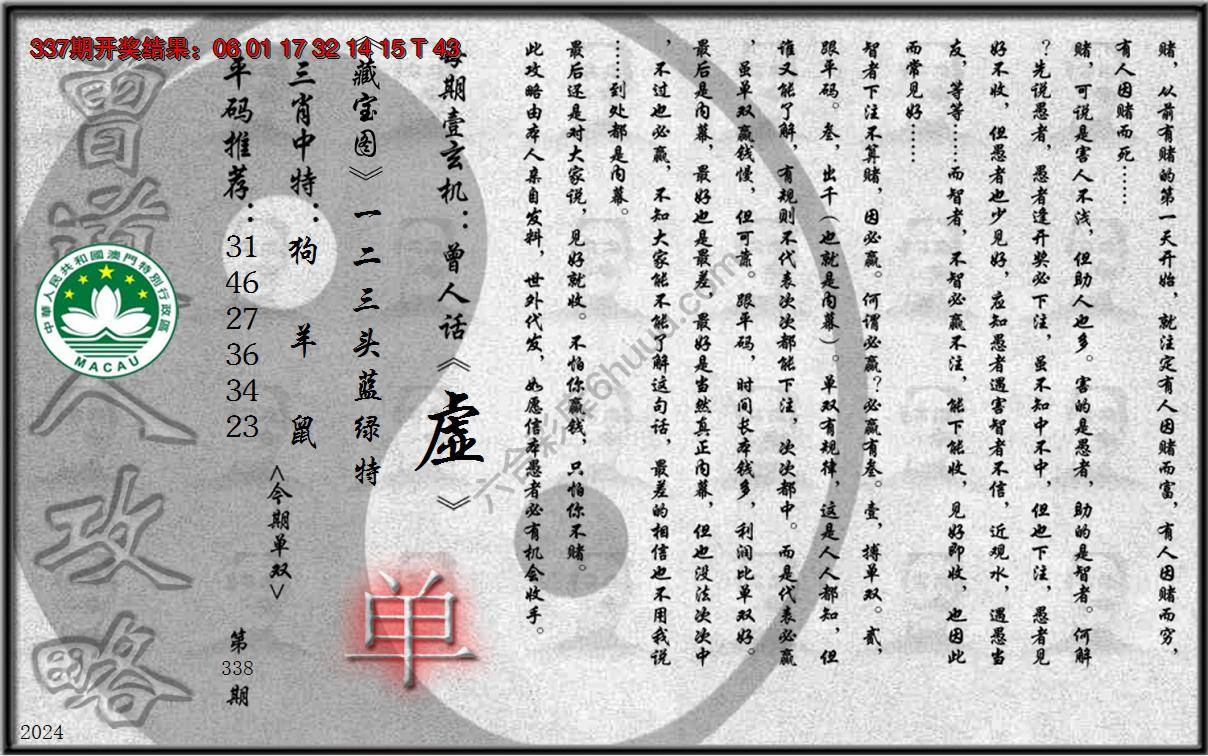 337期开奖结果：06 01 17 32 14 15 T 43
赌，从前有赌的第一天开始，就注定有人因赌而富，有人因赌而穷，
有人因赌而死……
赌，可说是害人不浅，但助人也多。害的是愚者，助的是智者。何解
？先说愚者，愚者逢开奖必下注，虽不知中不中，但也下注，愚者见
好不收，但愚者也少见好，应知愚者遇害智者不信，近观水，遇愚当
友，等等……而智者，不智必赢不注，能下能收，见好即收，也因此
而常见好……
智者下注不算赌，因必赢。何谓必赢？必赢有叁。壹，搏单双。贰，
跟平码。叁，出千（也就是内幕）。单双有规律，这是人人都知，但
谁又能了解，有规则不代表次次都能下注，次次都中。而是代表必赢
，虽单双赢钱慢，但可靠。跟平码，时间长本钱多，利润比单双好。
最后是内幕，最好也是最差，最好是当然真正内幕，但也没法次次中
，不过也必赢，不知大家能不能了解这句话，最差的相信也不用我说
……到处都是内幕。
最后还是对大家说，见好就收。不怕你赢钱，只怕你不赌。
此攻略由本人亲自发料，世外代发，如愿信本愚者必有机会收手。
每期壹玄机：曾人话《虚》
《藏宝图》一二三头蓝绿特
三肖中特：狗 羊 鼠
平码推荐：31 46 27 36 34 23
<今期单双>
单
第338期
曾道人攻略
中華人民共和國澳門特別行政區
MACAU
2024